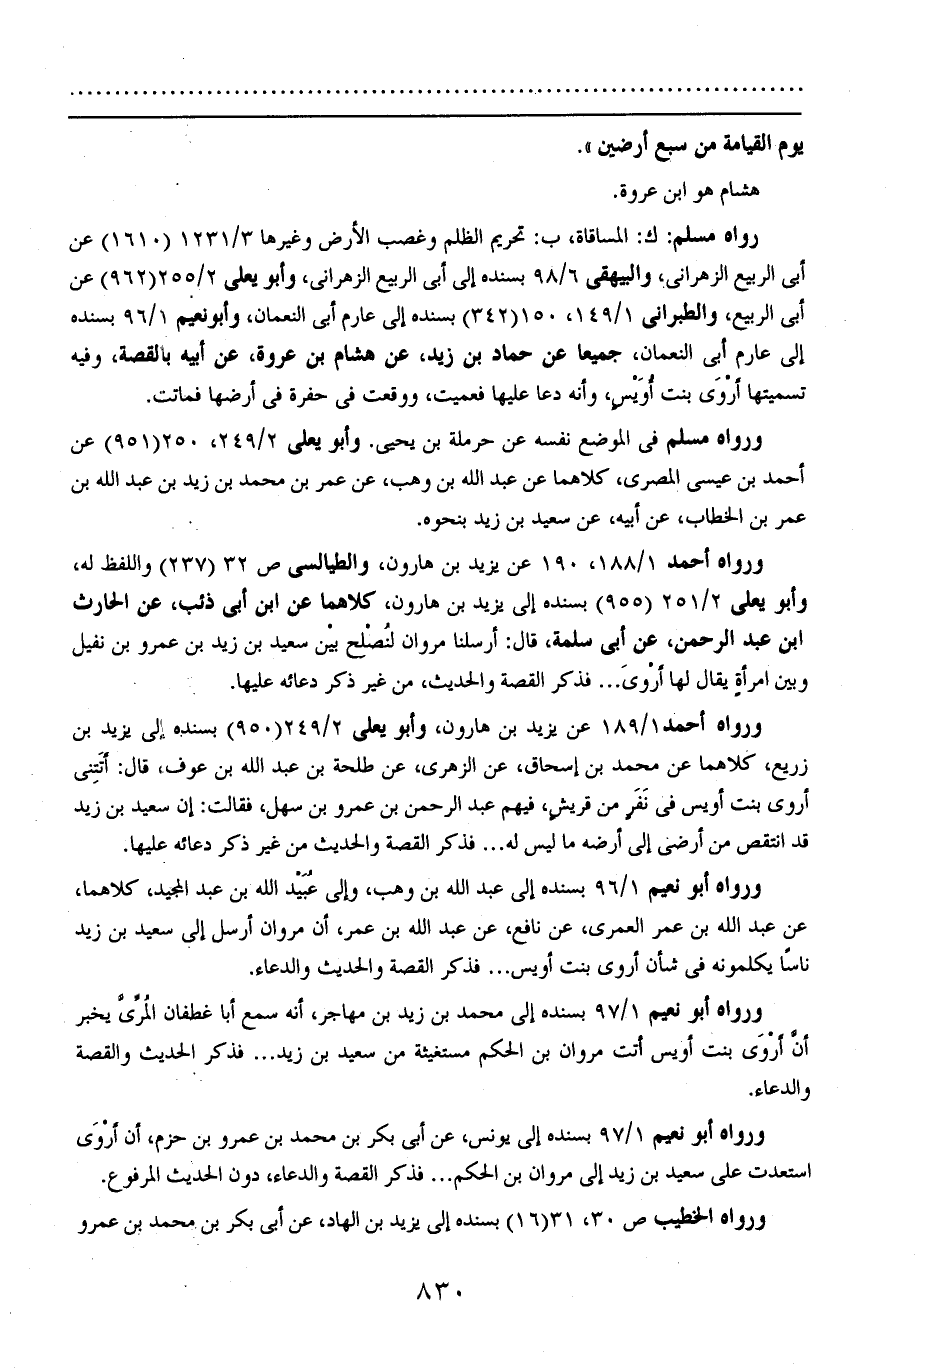 يوم القيامة من سبع أرضين ».
هشام هو ابن عروة.
رواه مسلم: ك: المساقاة، ب: تحريم الظلم وغصب الأرض وغيرها ١٢٣١/٣ (١٦١٠) عن
أبى الربيع الزهرانى، والبيهقى ٩٨/٦ بسنده إلى أبى الربيع الزهرانى، وأبو يعلى ٢٥٥/٢(٩٦٢) عن
أبى الربيع، والطبرانى ١٤٩/١، ١٥٠(٣٤٢) بسنده إلى عارم أبى النعمان، وأبونعيم ٩٦/١ بسنده
إلى عارم أبى النعمان، جميعا عن حماد بن زيد، عن هشام بن عروة، عن أبيه بالقصة، وفيه
تسميتها أرْوَى بنت أُوَيْسٍ، وأنه دعا عليها فعميت، ووقعت فى حفرة فى أرضها فماتت.
ورواه مسلم فى الموضع نفسه عن حرملة بن يحيى. وأبو يعلى ٢٤٩/٢، ٢٥٠(٩٥١) عن
أحمد بن عيسى المصرى، كلاهما عن عبد الله بن وهب، عن عمر بن محمد بن زيد بن عبد الله بن
عمر بن الخطاب، عن أبيه، عن سعيد بن زيد بنحوه.
ورواه أحمد ١٨٨/١، ١٩٠ عن يزيد بن هارون، والطيالسى ص ٣٢ (٢٣٧) واللفظ له،
وأبو يعلى ٢٥١/٢ (٩٥٥) بسنده إلى يزيد بن هارون، كلاهما عن ابن أبى ذئب، عن الحارث
ابن عبد الرحمن، عن أبى سلمة، قال: أرسلنا مروان لنُصْلح بيْن سعيد بن زيد بن عمرو بن نفيل
وبين امرأةٍ يقال لها أرْوىَ... فذكر القصة والحديث، من غير ذكر دعائه عليها.
ورواه أحمد١٨٩/١ عن يزيد بن هارون، وأبو يعلى ٢٤٩/٢(٩٥٠) بسنده إلى يزيد بن
زريع، كلاهما عن محمد بن إسحاق، عن الزهرى، عن طلحة بن عبد الله بن عوف، قال: أتَتنِى
أروى بنت أويس فى نَفَرٍ من قريشٍ، فيهم عبد الرحمن بن عمرو بن سهل، فقالت: إن سعيد بن زيد
قد انتقص من أرضى إلى أرضه ما ليس له... فذكر القصة والحديث من غير ذكر دعائه عليها.
ورواه أبو نعيم ٩٦/١ بسنده إلى عبد الله بن وهب، وإلى عُبَيْد الله بن عبد المجيد، كلاهما،
عن عبد الله بن عمر العمرى، عن نافع، عن عبد الله بن عمر، أن مروان أرسل إلى سعيد بن زيد
ناسًا يكلمونه فى شأن أروى بنت أويس... فذكر القصة والحديث والدعاء.
ورواه أبو نعيم ٩٧/١ بسنده إلى محمد بن زيد بن مهاجر، أنه سمع أبا غطفان المُرِّىَّ يخبر
أنَّ أَرْوَى بنت أويس أتت مروان بن الحكم مستغيثة من سعيد بن زيد... فذكر الحديث والقصة
والدعاء.
ورواه أبو نعيم ٩٧/١ بسنده إلى يونس، عن أبى بكر بن محمد بن عمرو بن حزم، أن أرْوَى
استعدت على سعيد بن زيد إلى مروان بن الحكم... فذكر القصة والدعاء، دون الحديث المرفوع.
ورواه الخطيب ص ٣٠، ٣١(١٦) بسنده إلى يزيد بن الهاد، عن أبى بكر بن محمد بن عمرو
٨٣٠